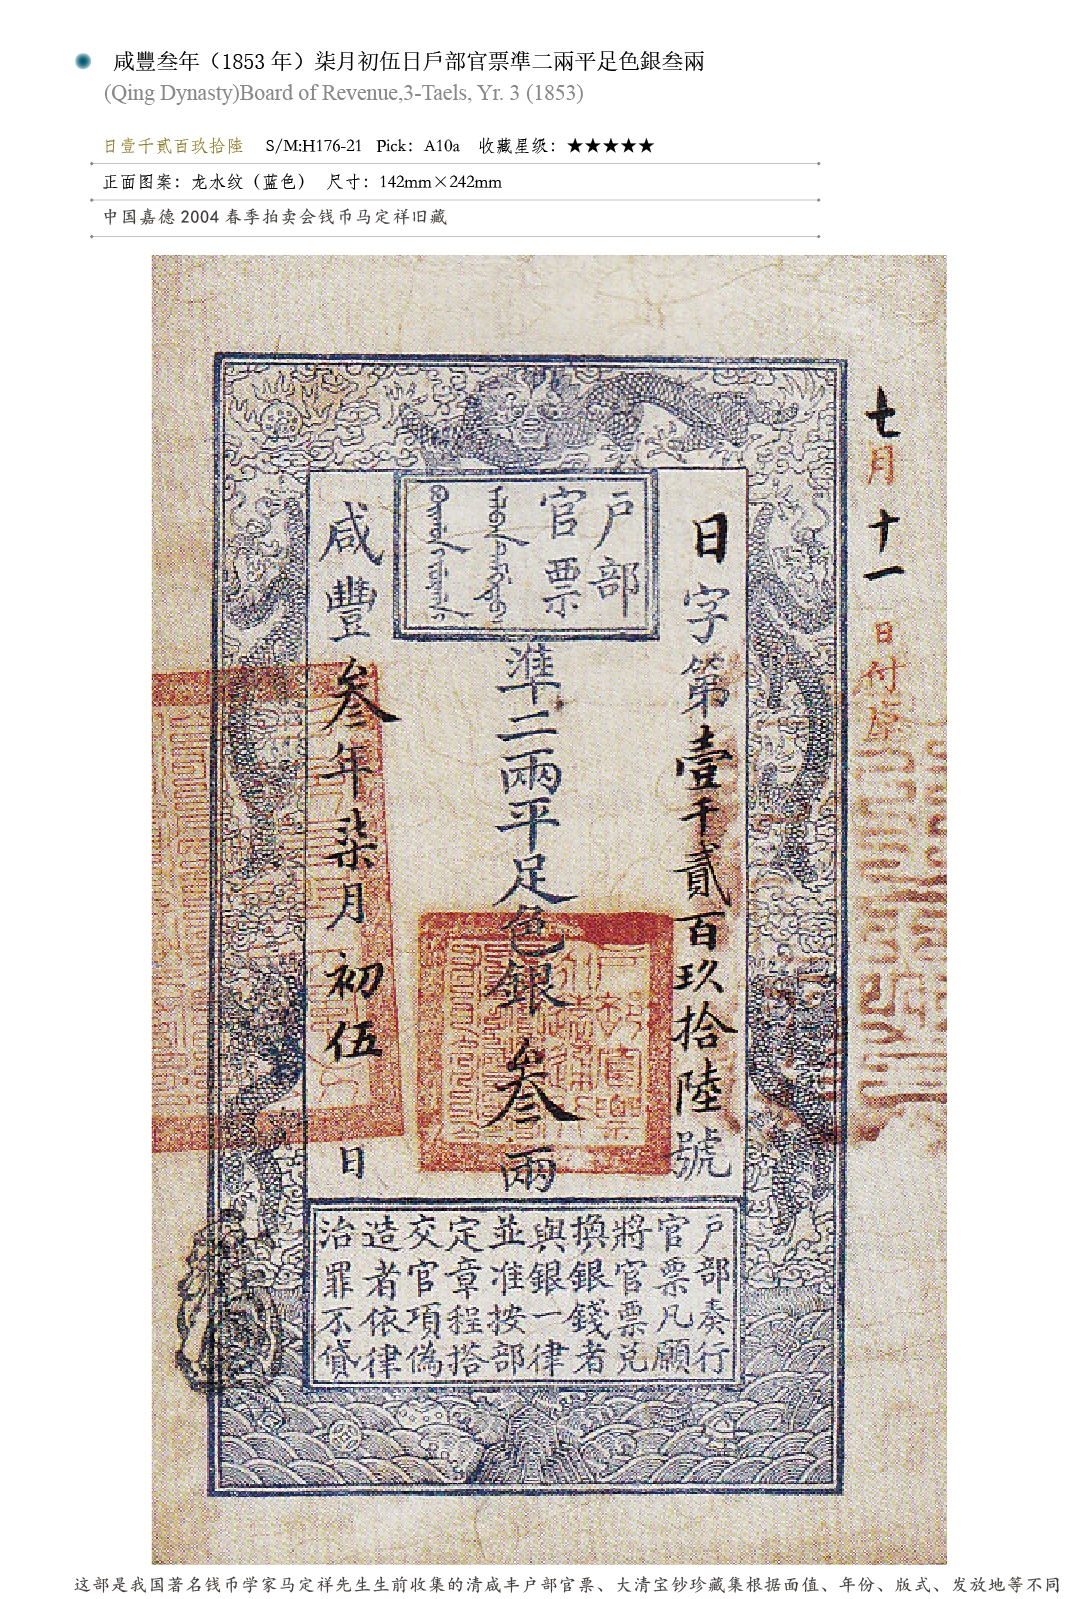 咸豐叁年（1853 年）柒月初伍日戶部官票準二兩平足色銀叁兩
(Qing Dynasty)Board of Revenue,3-Taels, Yr. 3 (1853)
日壹千貳百玖拾陸 S/M:H176-21 Pick：A10a 收藏星级：★★★★★
正面图案：龙水纹（蓝色） 尺寸：142mm×242mm
中国嘉德 2004 春季拍卖会钱币马定祥旧藏
七月十一日付
戶部
官票
日字第壹千貳百玖拾陸號
準二兩平足色銀叁兩
咸豐叁年柒月初伍日
戶部奏行
官票凡願
將官票兌
換銀錢者
與銀一律
並准按部
定章程搭
交官項偽
造者依律
治罪不貸
这部是我国著名钱币学家马定祥先生生前收集的清咸丰户部官票、大清宝钞珍藏集根据面值、年份、版式、发放地等不同